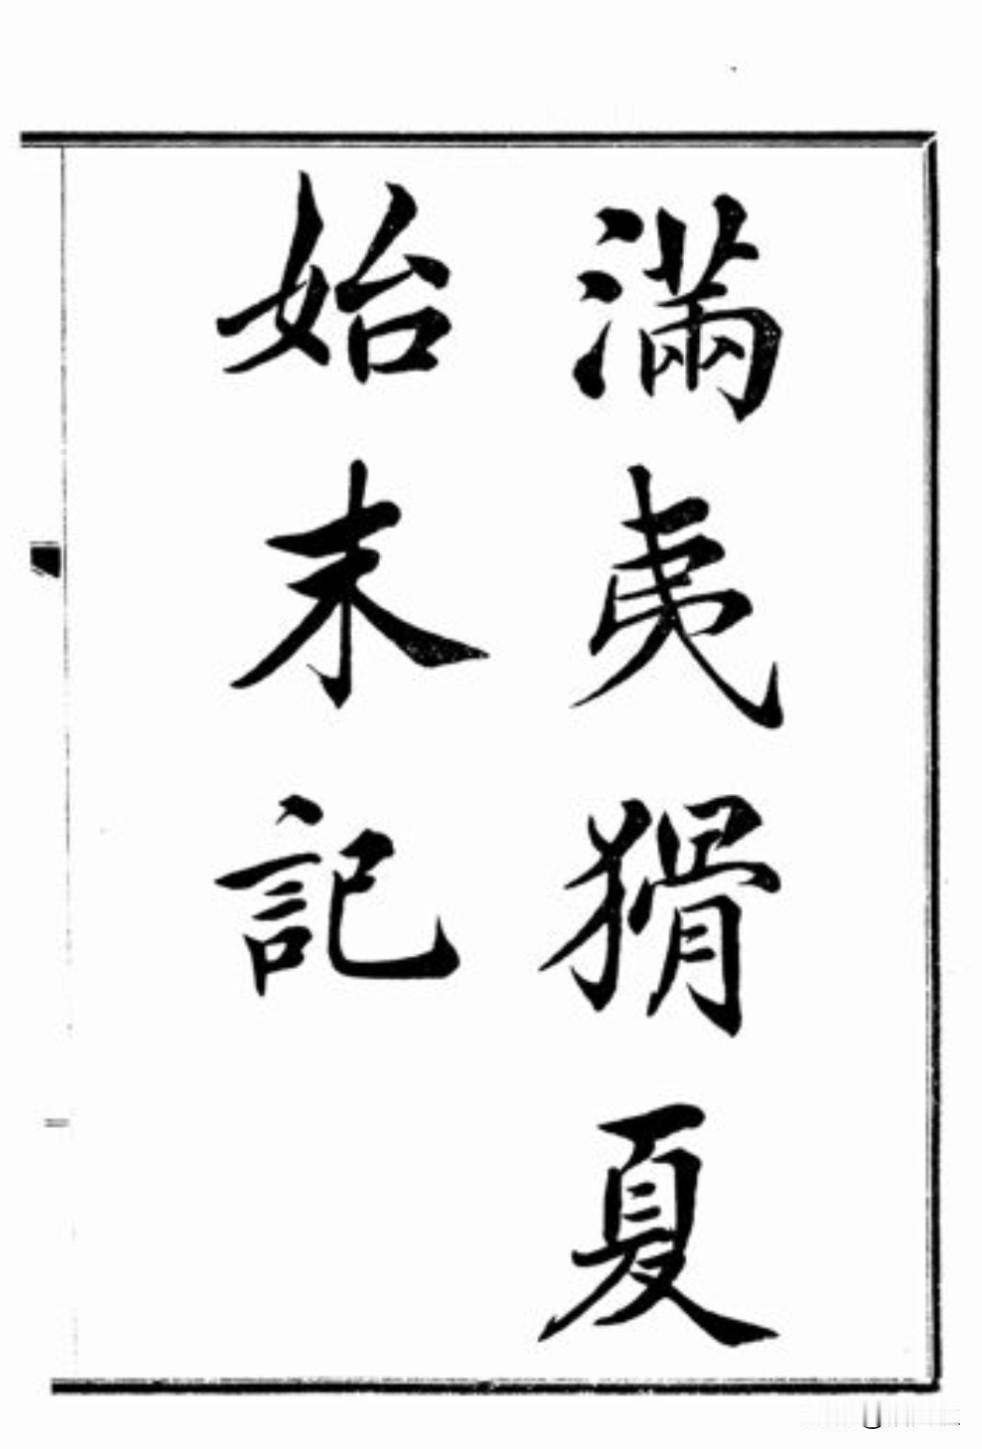 滿夷猾夏
始末記